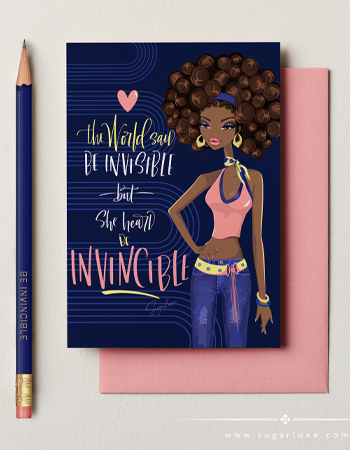 the World said
BE INVISIBLE
but
She heard
BE
INVINCIBLE
Sugarluxe
BE INVINCIBLE
www.sugarluxe.com